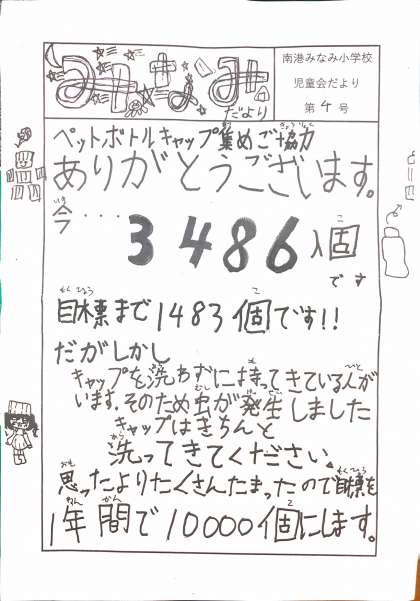 みなみ
だより
南港みなみ小学校
児童会だより
第4号
ペットボトルキャップ集めご協力
ありがとうございます。
今・・・・
3486個
です
目標まで1483個です!!
だがしかし
キャップを洗わずに持ってきている人が
います。そのため虫が発生しました
キャップはきちんと
洗ってきてください。
思ったよりたくさんたまったので目標を
1年間で10000個にします。